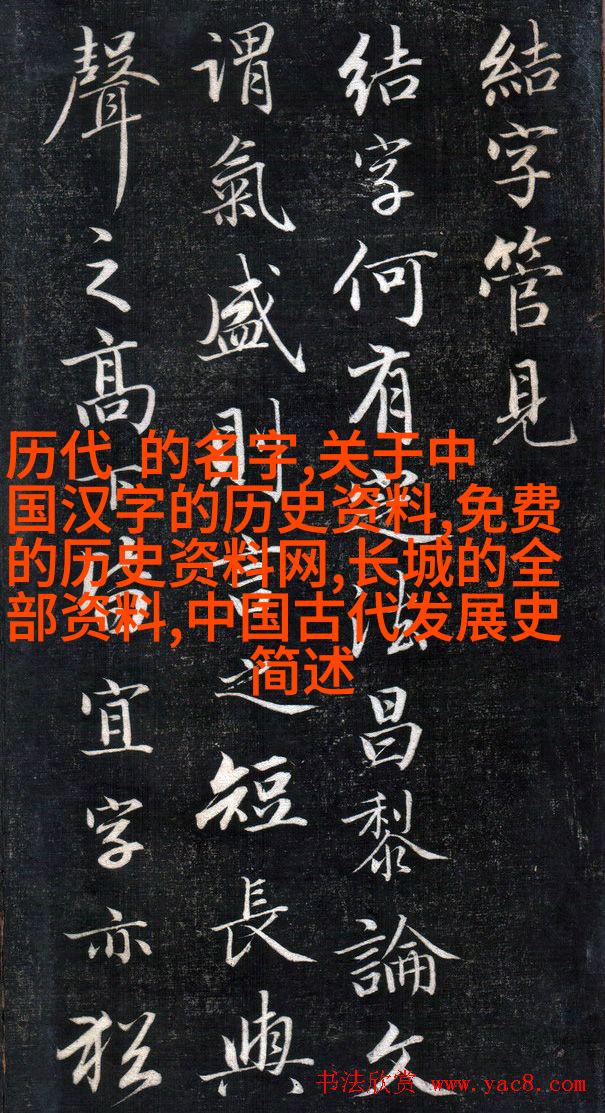 結字管見
结字何有法昌黎論文
謂氣盛則言之短長與
聲之高下皆宜字亦猶
历代 的名字,关于中
国汉字的历史资料,免费
的历史资料网,长城的全
部资料,中国古代发展史
简述
书法欣赏 www.yac8.com